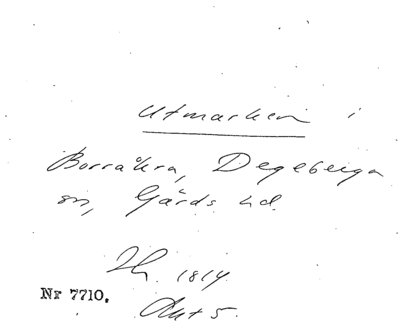 Utmarken i
Borråkra, Degeberga
sn, Gärds hd.
1814
Nr 7710.
Akt 5.